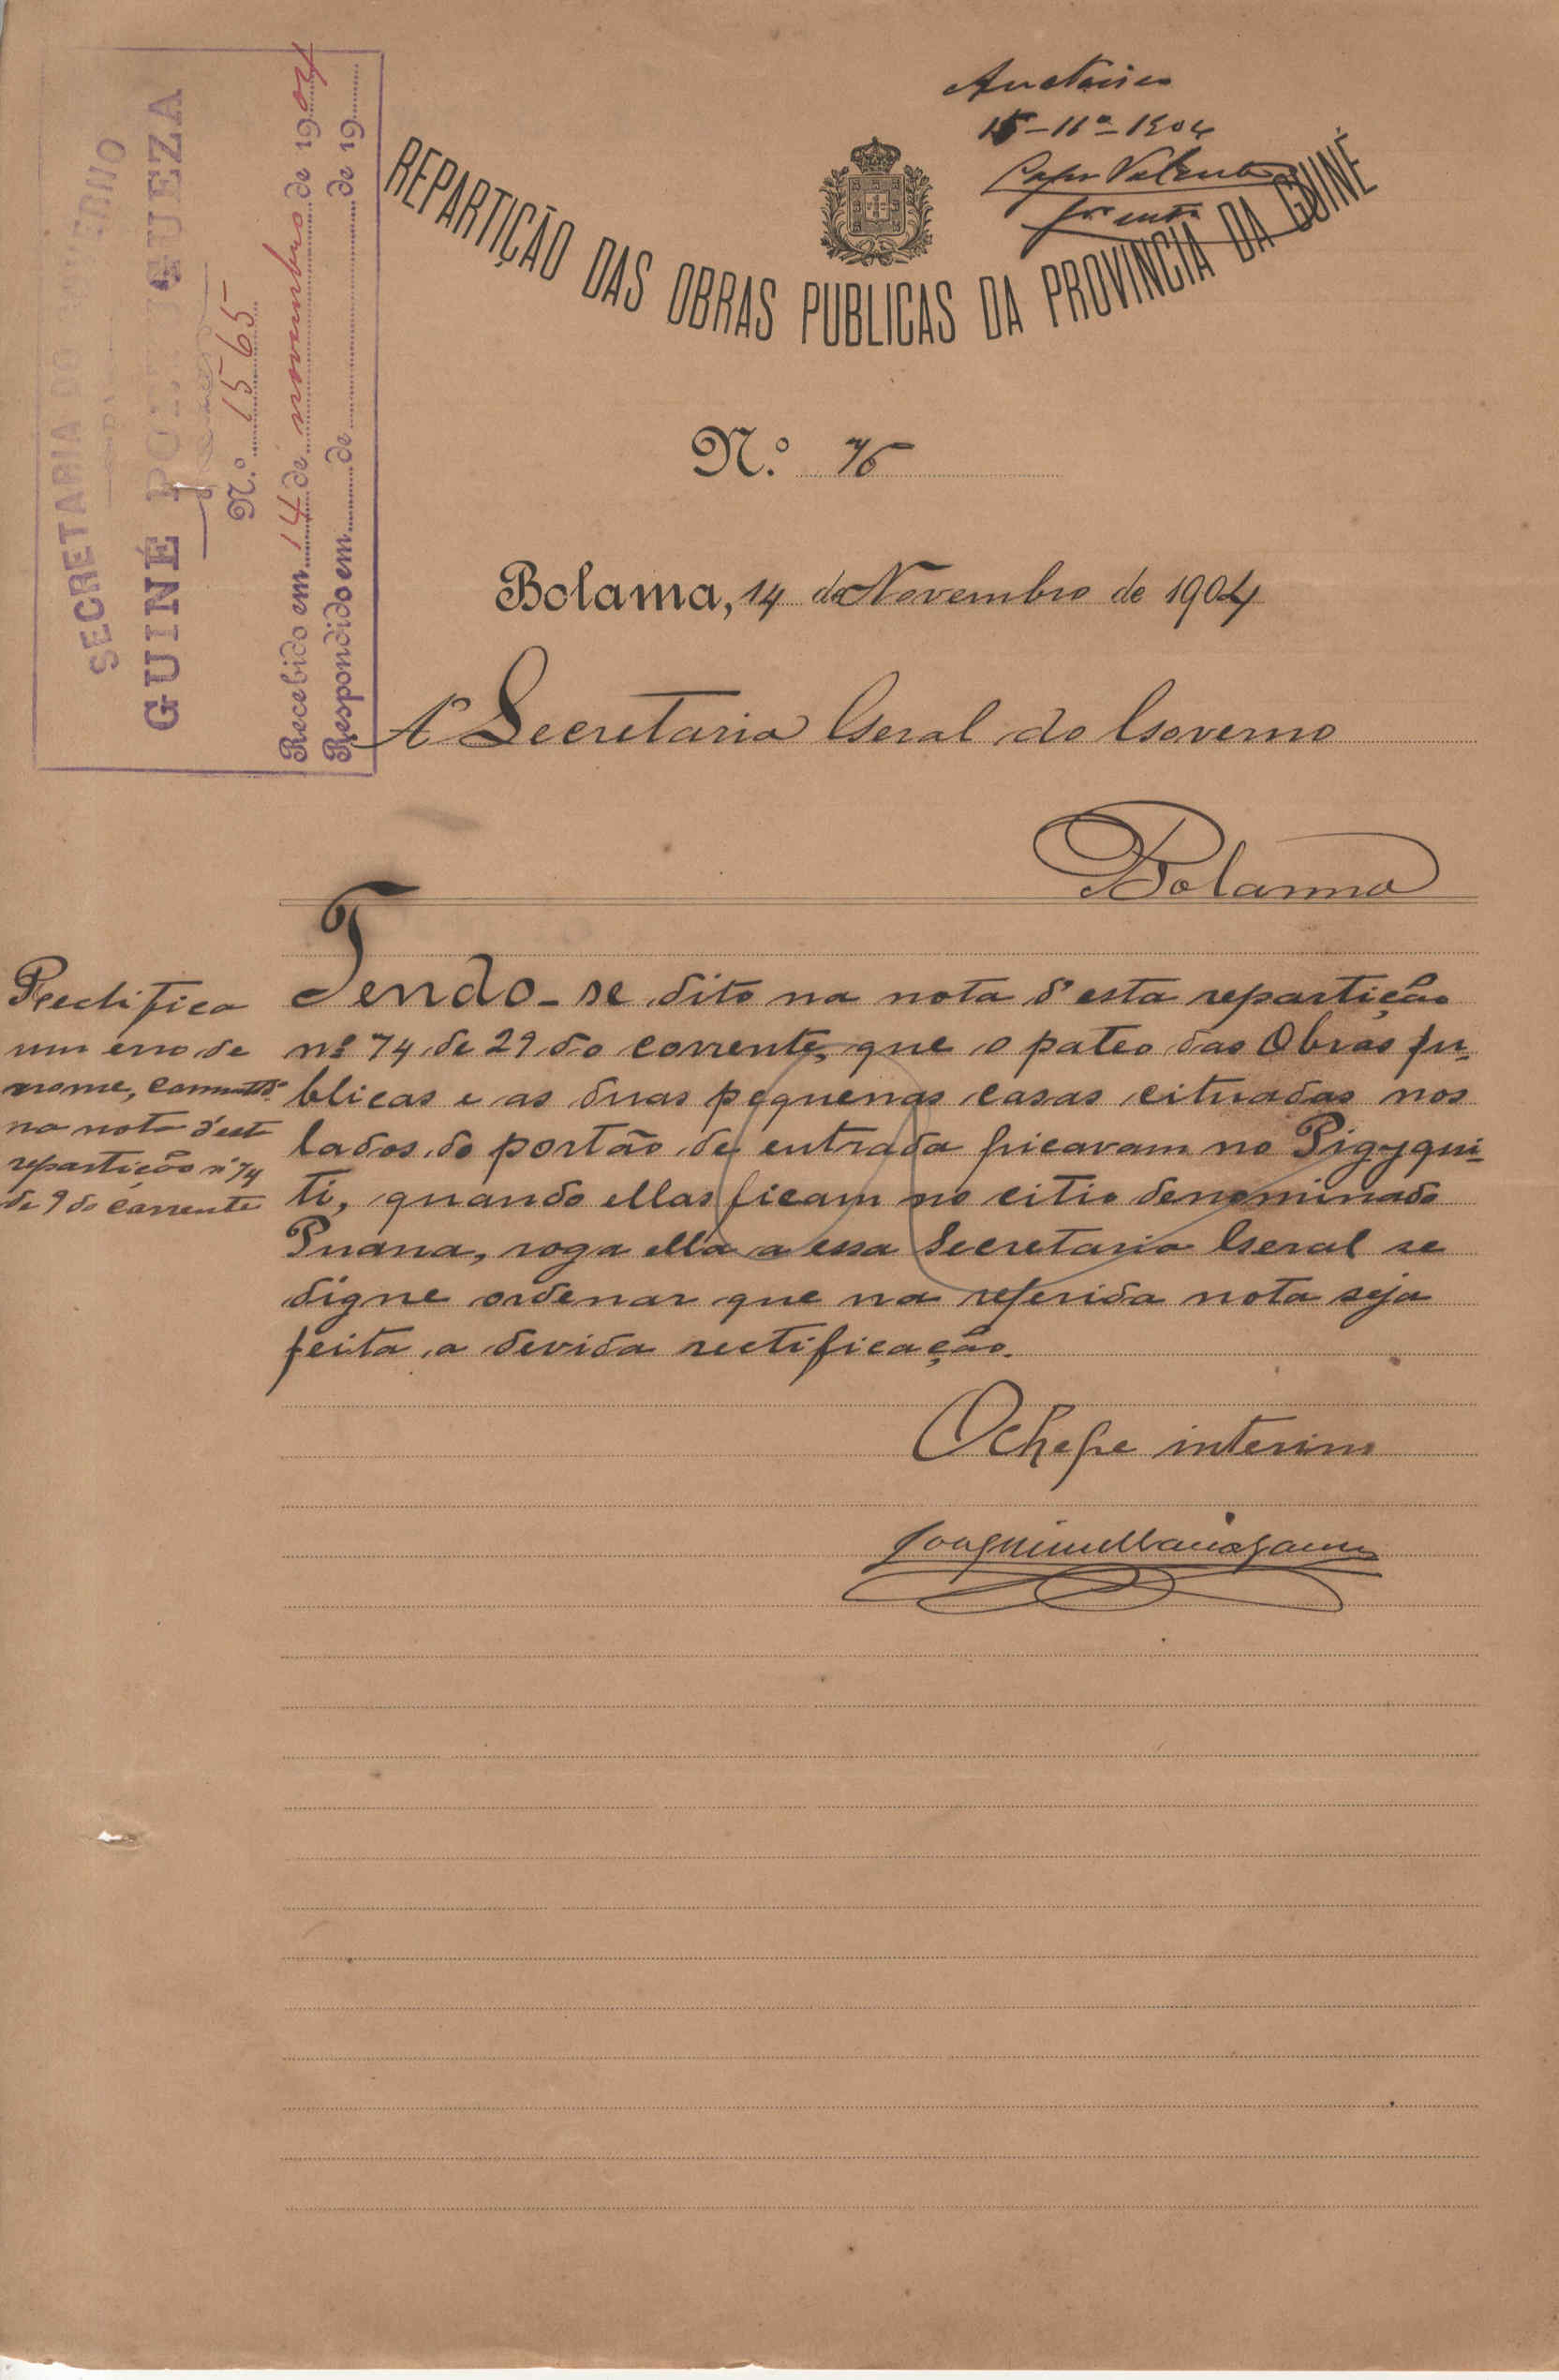 SECRETARIA DO GOVERNO
DA
GUINÉ PORTUGUEZA
N.º 1565
Recebido em 14 de novembro de 1904
Respondido em de de 19
15-11º-1904
REPARTIÇÃO DAS OBRAS PUBLICAS DA PROVINCIA DA GUINÉ
N.º 76
Bolama, 14 de Novembro de 1904
A' Secretaria Geral do Governo
Bolama
Rectifica
um erro de
nome,
na nota d'esta
repartição nº 74
de 9 do corrente
Tendo-se dito na nota d'esta repartição
nº 74 de 29 do corrente, que o pateo das Obras Pu-
blicas e as duas pequenas casas cituadas nos
lados do portão de entrada ficavam no Pigyqui-
ti, quando ellas ficam no citio denominado
Puana, roga ella a essa Secretaria Geral se
digne ordenar que na referida nota seja
feita a devida rectificação.
O Chefe interino
Joaquim Maria